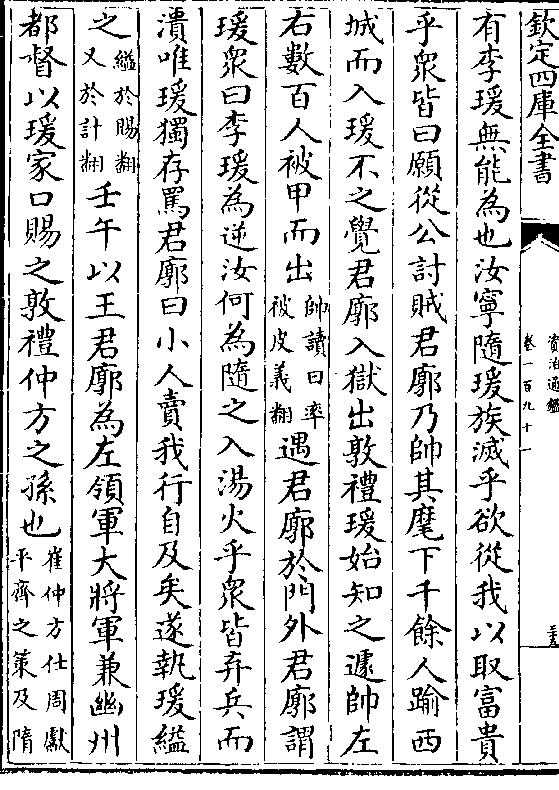 欽定四庫全書
資治通鑑
卷一百九十一
三五
有李瑗無能為也汝寧隨瑗族滅乎欲從我以取富貴
乎衆皆曰願從公討賊君廓乃帥其麾下千餘人踰西
城而入瑗不之覺君廓入獄出敦禮瑗始知之遽帥左
右數百人被甲而出帥讀曰率被皮義翻遇君廓於門外君廓謂
瑗衆曰李瑗為逆汝何為隨之入湯火乎衆皆弃兵而
潰唯瑗獨存罵君廓曰小人賣我行自及矣遂執瑗縊
之縊於賜翻又於計翻壬午以王君廓為左領軍大將軍兼幽州
都督以瑗家口賜之敦禮仲方之孫也崔仲方仕周獻平齊之策及隋